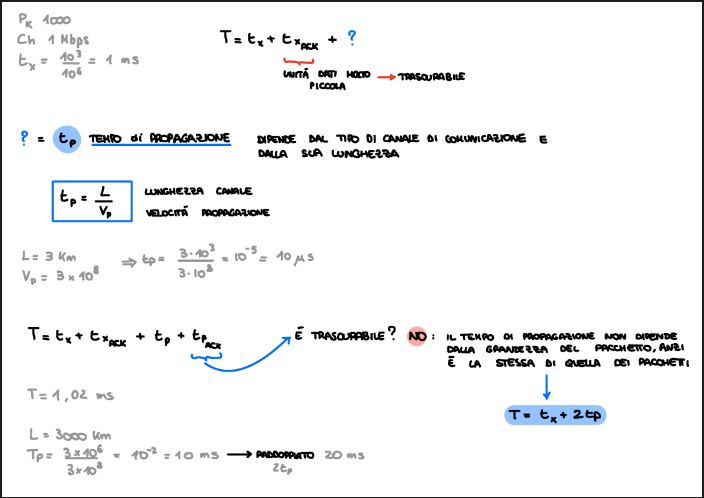 Pk 1000
Ch 1 Mbps
tx = 10³/10⁶ = 1 ms
T = tx + txACK + ?
UNITÁ DATI MOLTO PICCOLA → TRASCURABILE
? = tp TEMPO di PROPAGAZIONE DIPENDE DAL TIPO DI CANALE DI COMUNICAZIONE E
DALLA SUA LUNGHEZZA
tp = L/Vp LUNGHEZZA CANALE
VELOCITÁ PROPAGAZIONE
L = 3 Km
Vp = 3 × 10⁸
⇒ tp = 3·10³/3·10⁸ = 10⁻⁵ = 10 μs
T = tx + txACK + tp + tpACK
É TRASCURABILE? NO: IL TEMPO DI PROPAGAZIONE NON DIPENDE
DALLA GRANDEZZA DEL PACCHETTO, ANZI
É LA STESSA DI QUELLA DEI PACCHETTI
T = tx + 2tp
T = 1,02 ms
L = 3000 Km
Tp = 3×10⁶/3×10⁸ = 10⁻² = 10 ms → RADDOPPIATO 20 ms
2tp